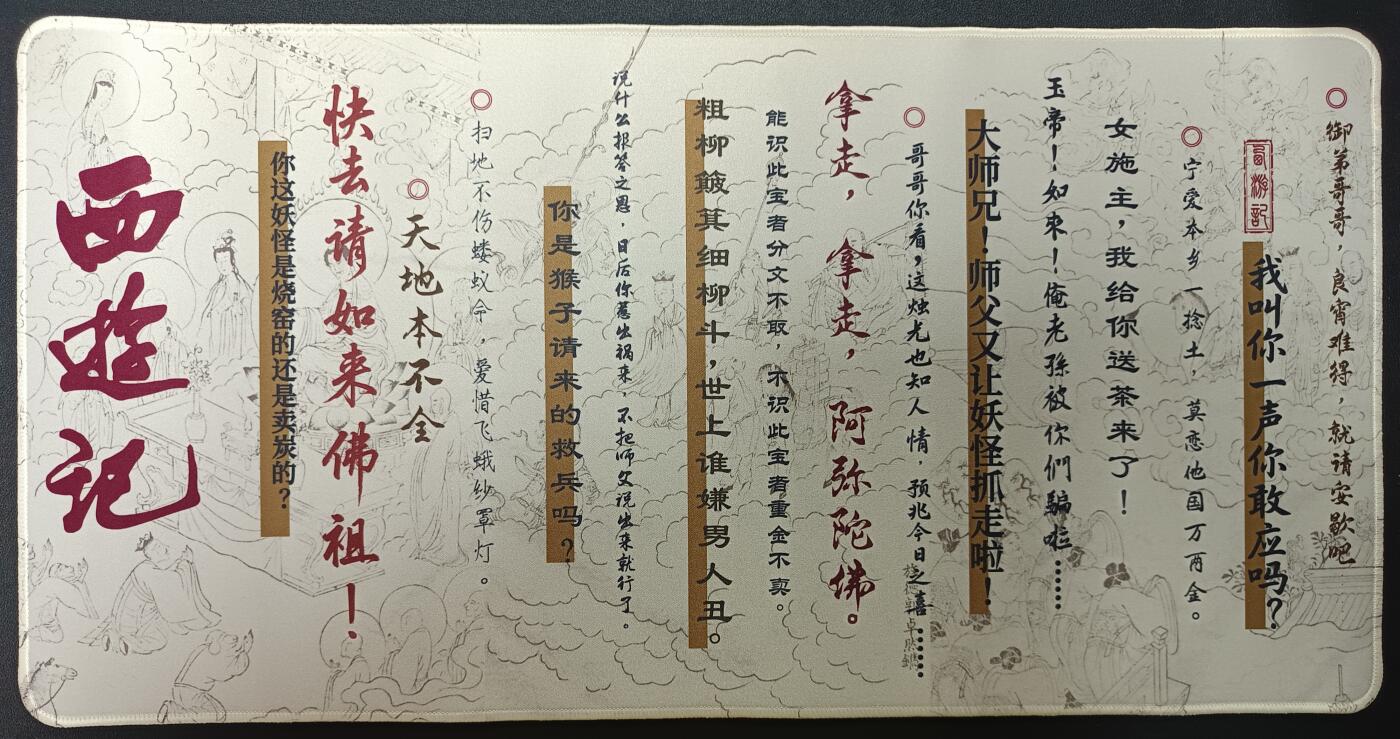 御弟哥哥，良宵难得，就请安歇吧
西游记
我叫你一声你敢应吗？
宁爱本乡一捻土，莫恋他国万两金。
女施主，我给你送茶来了！
玉帝！如来！俺老孫被你們騙啦……
大师兄！师父又让妖怪抓走啦！
哥哥你看，这烛光也知人情，预兆今日之喜……
拿走，拿走，阿弥陀佛。
能识此宝者分文不取，不识此宝者重金不卖。
粗柳簸箕细柳斗，世上谁嫌男人丑。
说什么报答之恩，日后你惹出祸来，不把师父说出来就行了。
你是猴子请来的救兵吗？
扫地不伤蝼蚁命，爱惜飞蛾纱罩灯。
天地本不全
快去请如来佛祖！
你这妖怪是烧窑的还是卖炭的？
西遊记